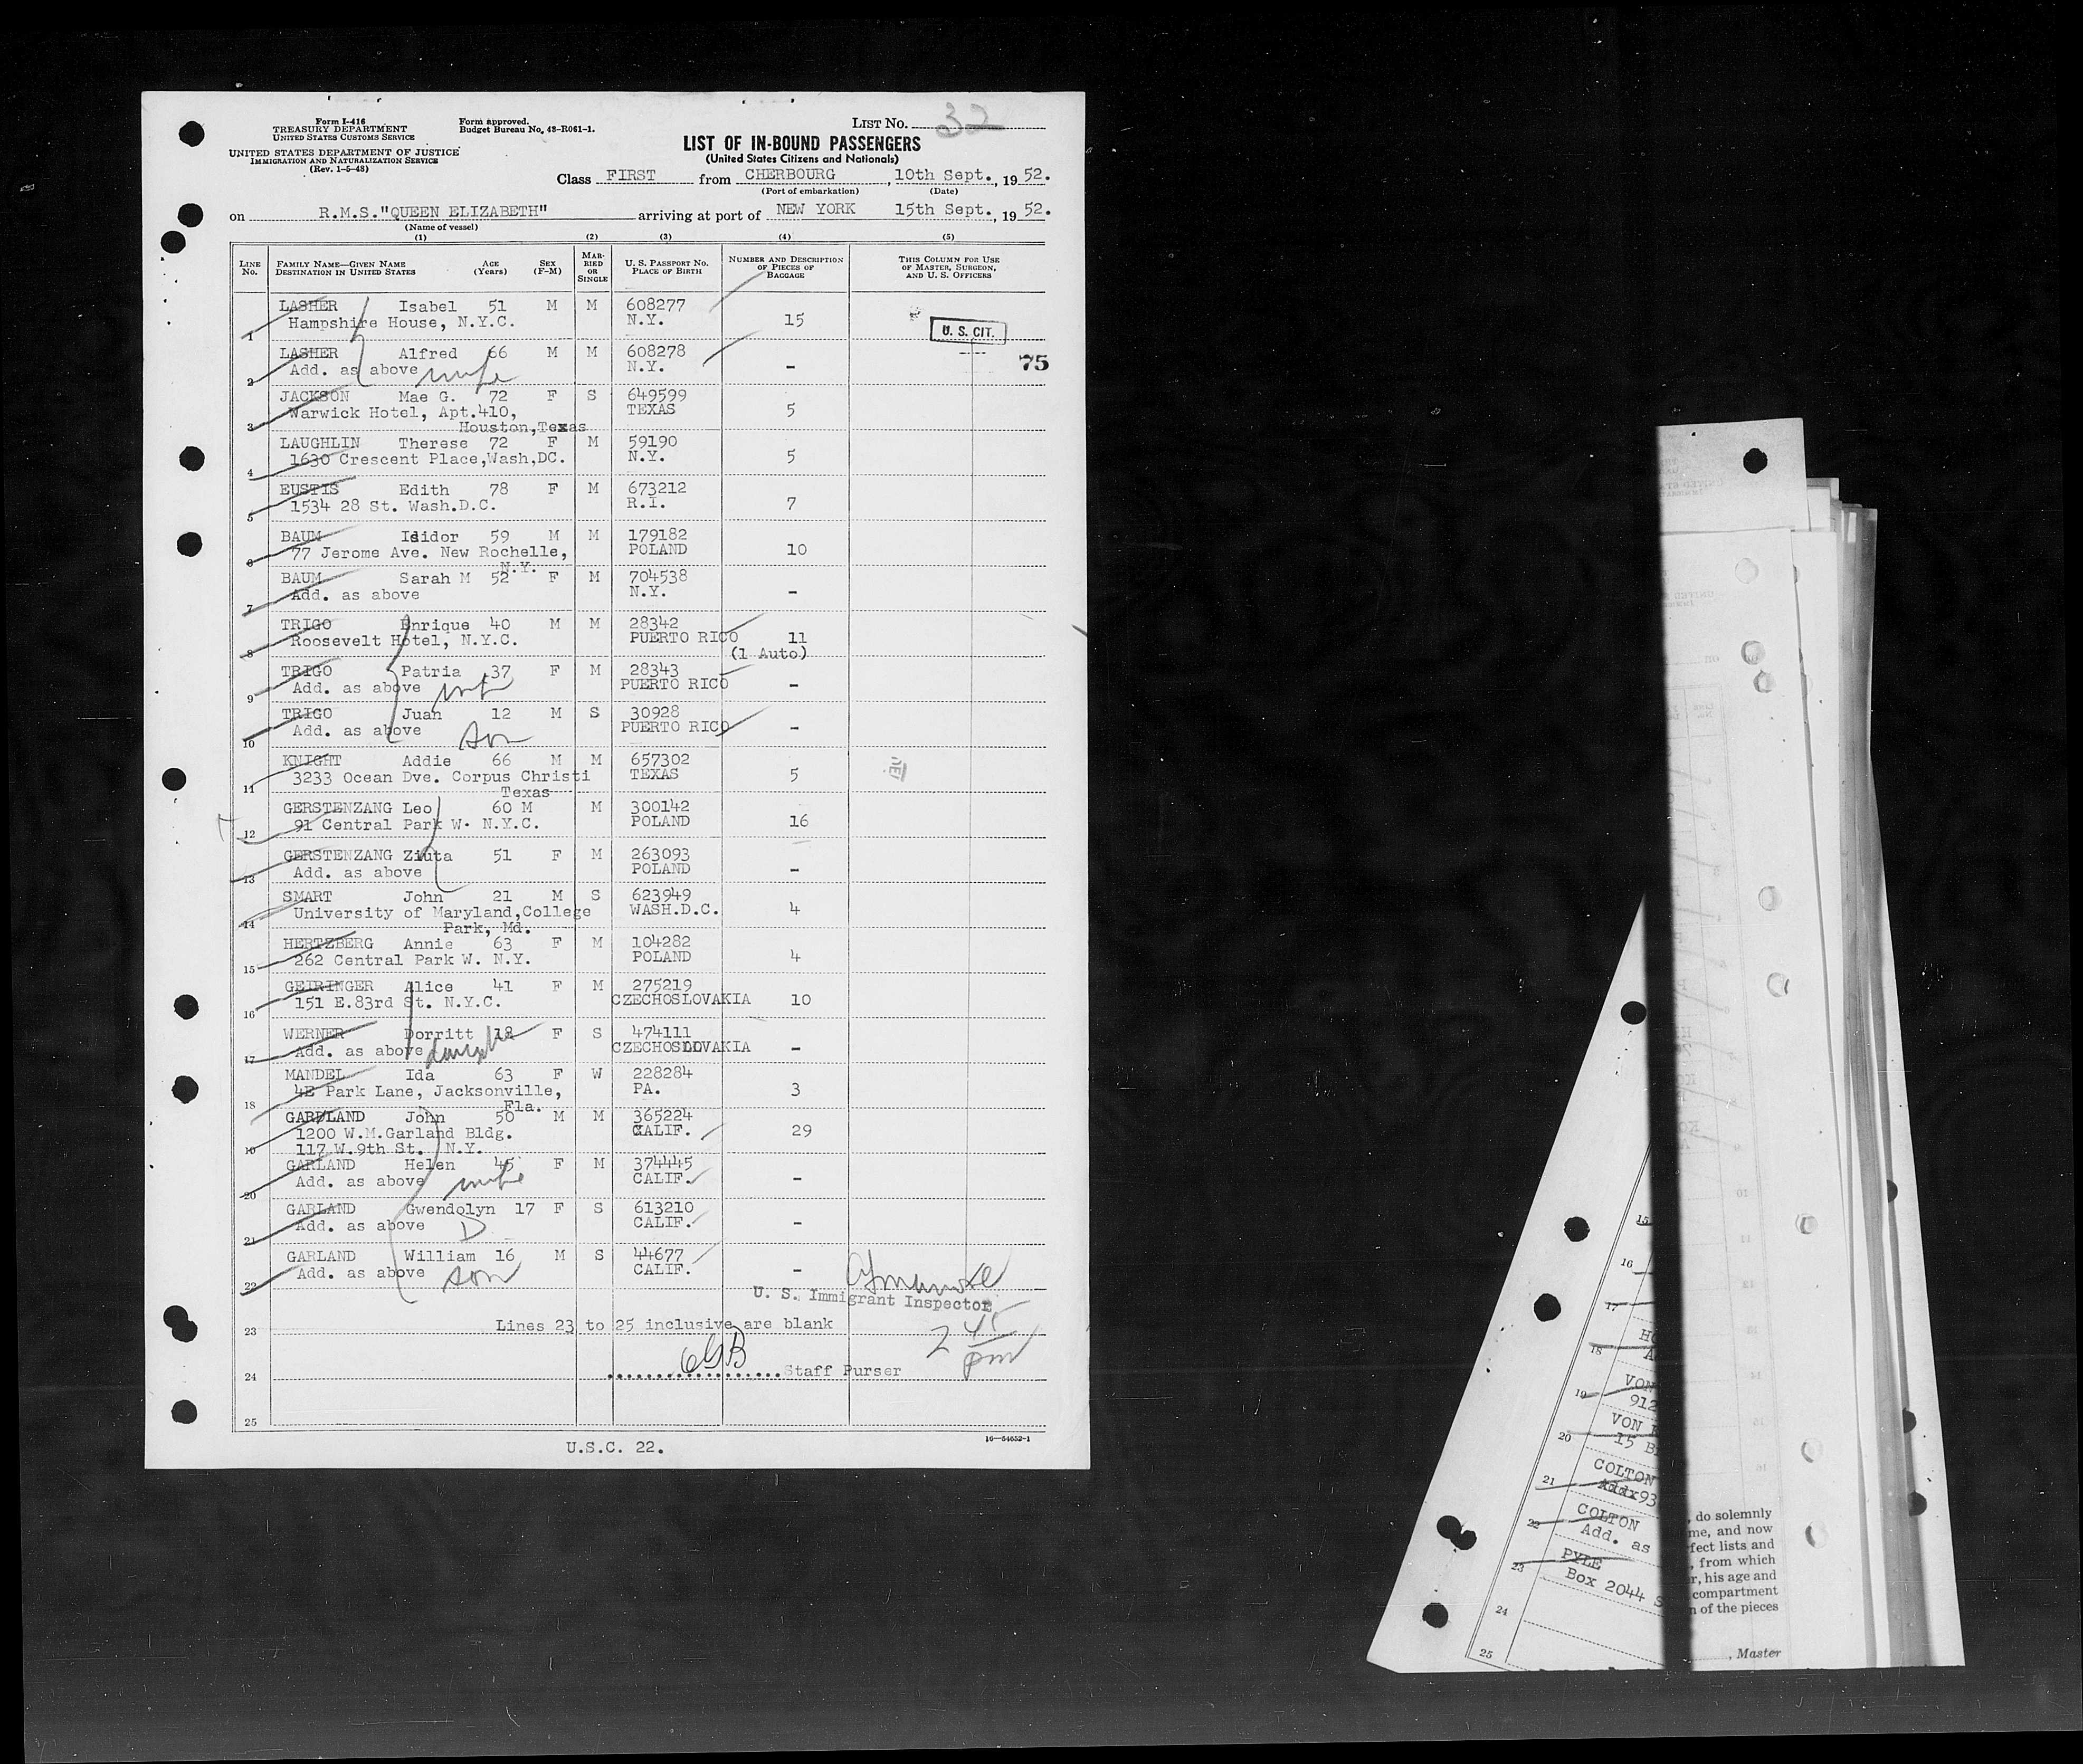 Form I-416
TREASURY DEPARTMENT
UNITED STATES CUSTOMS SERVICE
UNITED STATES DEPARTMENT OF JUSTICE
IMMIGRATION AND NATURALIZATION SERVICE
(Rev. 1-5-48)
Form approved.
Budget Bureau No. 48-R061-1.
LIST NO. 32
LIST OF IN-BOUND PASSENGERS
(United States Citizens and Nationals)
Class FIRST from CHERBOURG, 10th Sept., 1952.
(Port of embarkation) (Date)
on R.M.S."QUEEN ELIZABETH" arriving at port of NEW YORK 15th Sept., 1952.
(Name of vessel)
(1) (2) (3) (4) (5)
LINE NO. FAMILY NAME—GIVEN NAME DESTINATION IN UNITED STATES AGE (Years) SEX (F-M) MARRIED OR SINGLE U. S. PASSPORT NO. PLACE OF BIRTH NUMBER AND DESCRIPTION OF PIECES OF BAGGAGE THIS COLUMN FOR USE OF MASTER, SURGEON, AND U. S. OFFICERS
LASHER Isabel 51 M M 608277
1 Hampshire House, N.Y.C. N.Y. 15
U. S. CIT.
75
LASHER Alfred 66 M M 608278
2 Add. as above wife N.Y. -
JACKSON Mae G. 72 F S 649599
Warwick Hotel, Apt.410, TEXAS 5
3 Houston,Texas
LAUGHLIN Therese 72 F M 59190
4 1630 Crescent Place,Wash,DC. N.Y. 5
EUSTIS Edith 78 F M 673212
5 1534 28 St. Wash.D.C. R.I. 7
BAUM Isidor 59 M M 179182
6 77 Jerome Ave. New Rochelle, POLAND 10
N.Y.
BAUM Sarah M 52 F M 704538
7 Add. as above N.Y. -
TRIGO Enrique 40 M M 28342
8 Roosevelt Hotel, N.Y.C. PUERTO RICO 11
(1 Auto)
TRIGO Patria 37 F M 28343
9 Add. as above wife PUERTO RICO -
TRIGO Juan 12 M S 30928
10 Add. as above son PUERTO RICO -
KNIGHT Addie 66 M M 657302
11 3233 Ocean Dve. Corpus Christi TEXAS 5
Texas
GERSTENZANG Leo 60 M M 300142
12 91 Central Park W. N.Y.C. POLAND 16
GERSTENZANG Ziuta 51 F M 263093
13 Add. as above POLAND -
SMART John 21 M S 623949
14 University of Maryland,College WASH.D.C. 4
Park, Md.
HERTZBERG Annie 63 F M 104282
15 262 Central Park W. N.Y. POLAND 4
GEIRINGER Alice 41 F M 275219
16 151 E.83rd St. N.Y.C. CZECHOSLOVAKIA 10
WERNER Dorritt 18 F S 474111
17 Add. as above daughter CZECHOSLOVAKIA -
MANDEL Ida 63 F W 228284
18 4E Park Lane, Jacksonville, PA. 3
Fla.
GARLAND John 50 M M 365224
19 1200 W.M.Garland Bldg. CALIF. 29
117 W.9th St. N.Y.
GARLAND Helen 45 F M 374445
20 Add. as above wife CALIF. -
GARLAND Gwendolyn 17 F S 613210
21 Add. as above D CALIF. -
GARLAND William 16 M S 44677
22 Add. as above son CALIF. -
U. S. Immigrant Inspector
23 Lines 23 to 25 inclusive are blank
2 45 pm
24 Staff Purser
25
U.S.C. 22.
16—54652-1
15
16
17
18 HO
A
19 VON
912
20 VON
15 B
21 COLTON
Addx93
22 COLTON
Add. as
23 PYLE
Box 2044 S
24
25
, do solemnly
me, and now
fect lists and
, from which
r, his age and
compartment
n of the pieces
, Master